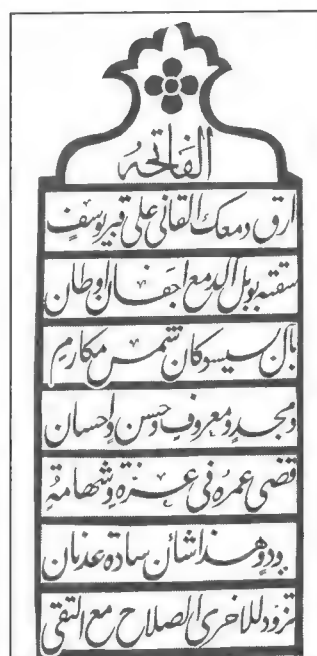 الفاتحه
ارق دمعك القاني على قبر يوسفٍ
سقته بوبل الدمع اجفان اوطان
بآل سيسو كان شمس مكارمٍ
ومجدٍ ومعروفٍ وحسن واحسان
قضى عمره في عزة وشهامةٍ
وهذا شان سادة عدنان
تزود للاخرى الصلاح مع التقى